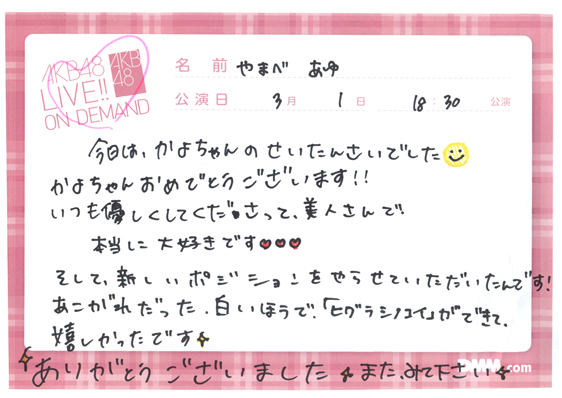 AKB48
LIVE!!
ON DEMAND
AKB
48
名 前 やまべ あゆ
公演日 3月 1日 18:30 公演
今日は、かよちゃんのせいたんさいでした
かよちゃんおめでとうございます!!
いつも優しくしてくださって、美人さんで
本当に大好きです
そして、新しいポジションをやらせていただいたんです!
あこがれだった、白いほうで、「ヒグラシノコイ」ができて、
嬉しかったです
ありがとうございました また、みて下さい
DMM.com